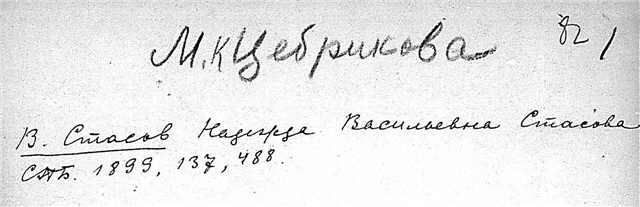 М.К Цебрикова 82 /
В. Стасов Надежда Васильевна Стасова
СПБ. 1899, 137, 488.